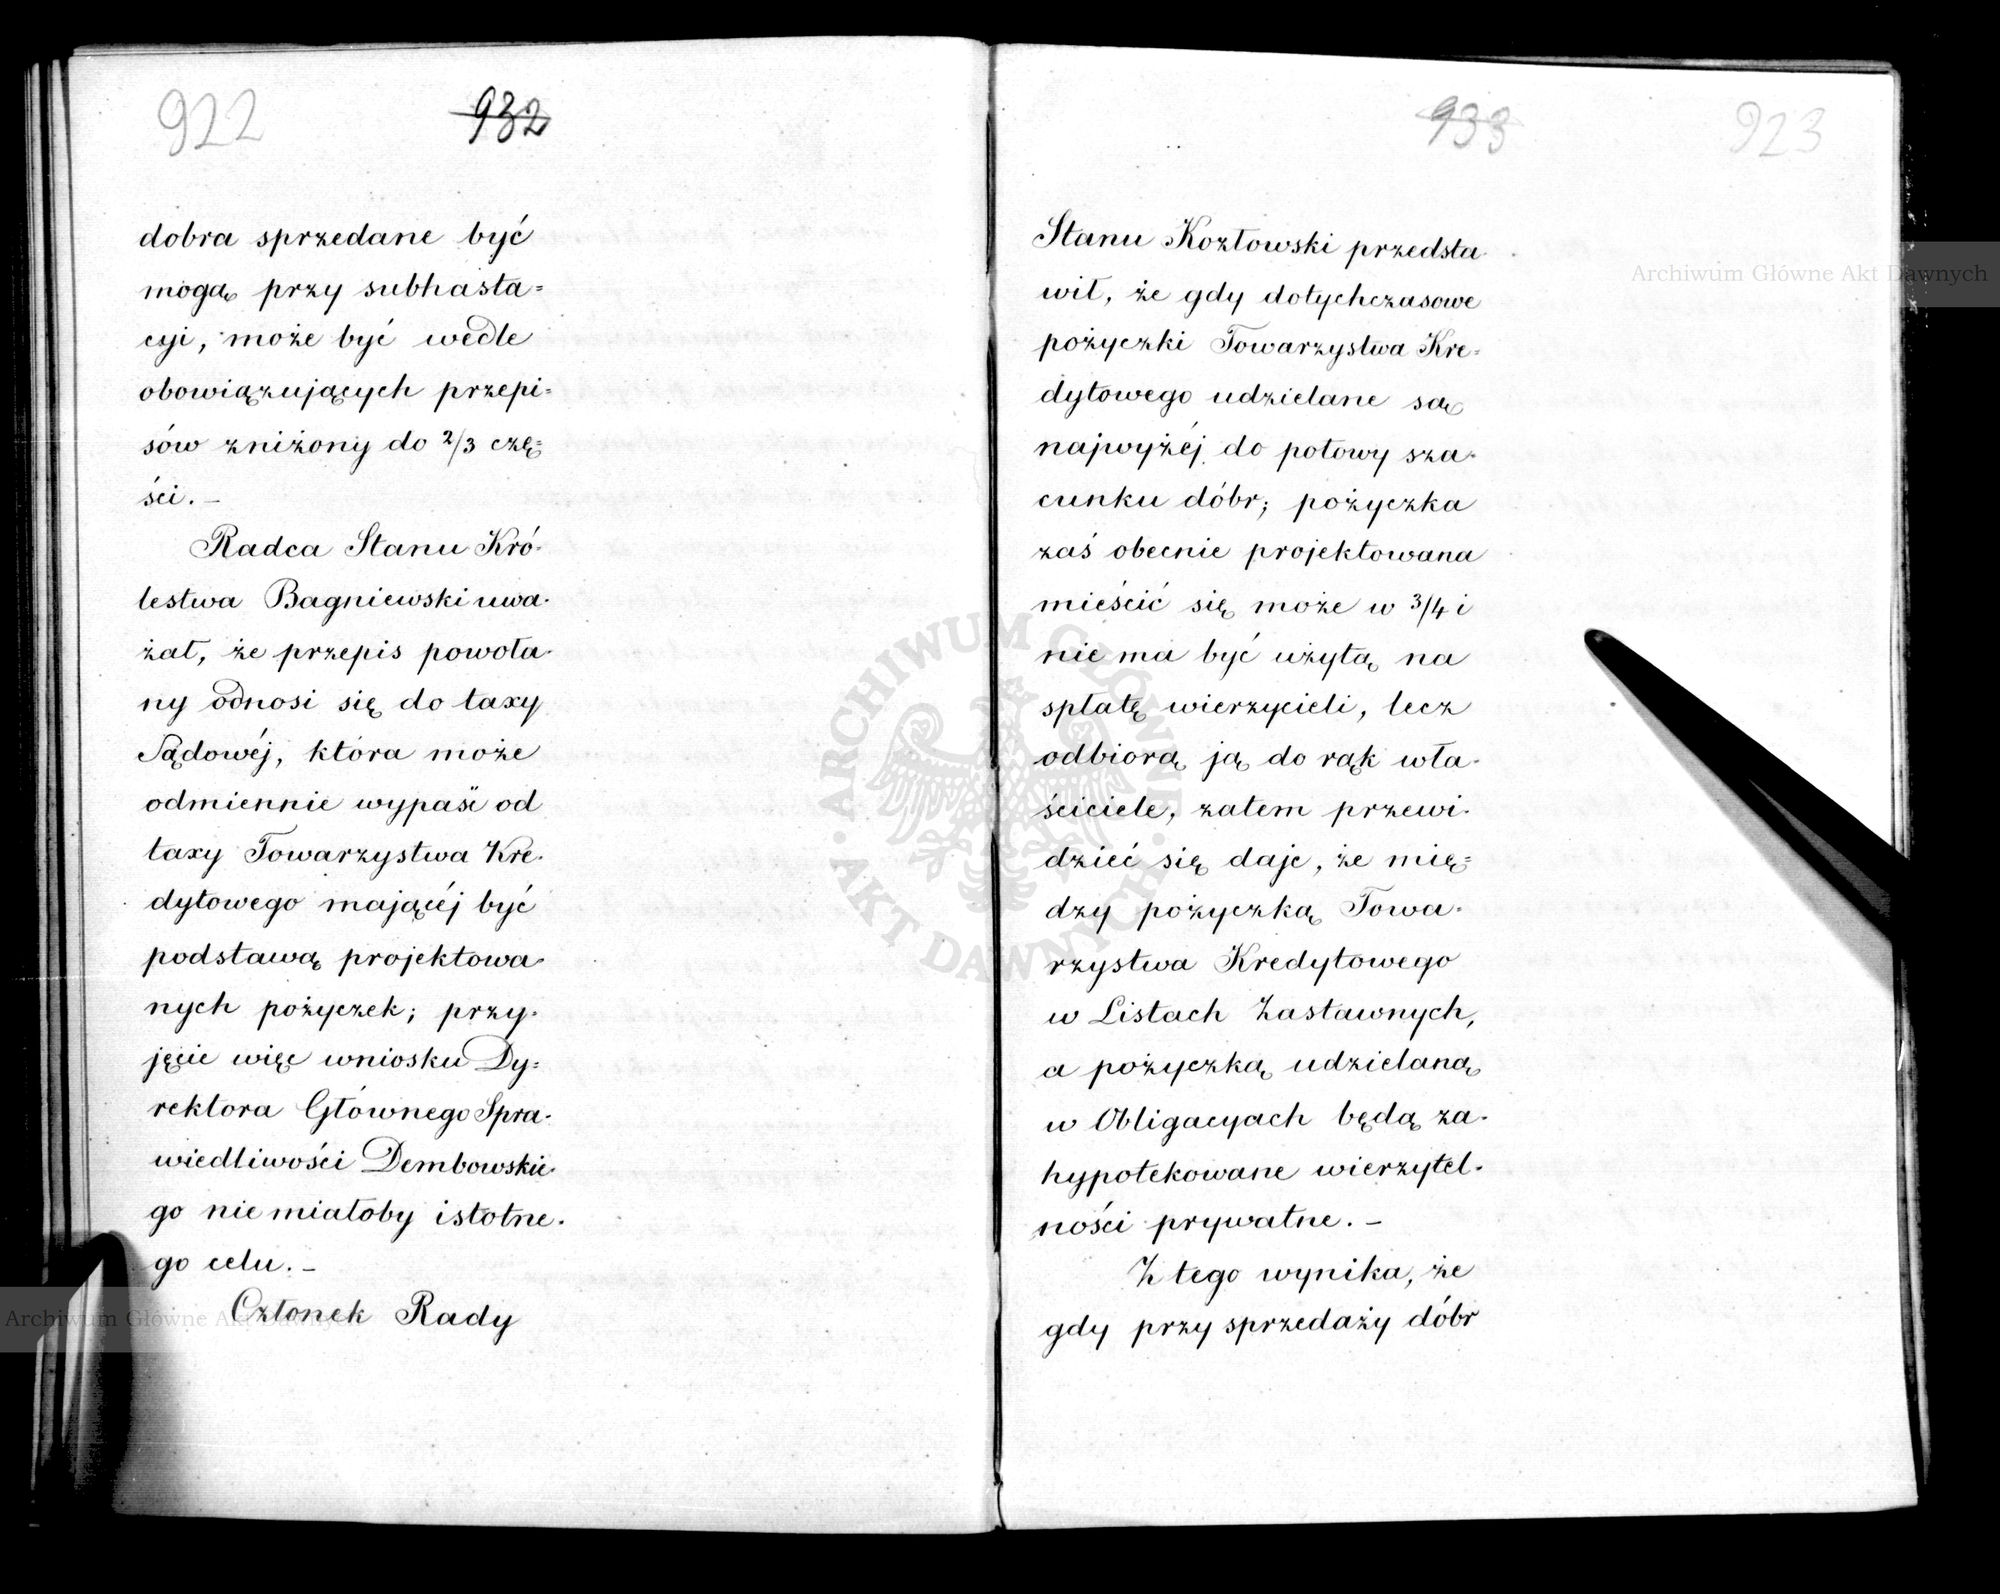 922 932
dobra sprzedane być
mogą przy subhasta=
cyi, może być wedle
obowiązujących przepi=
sów zniżony do 2/3 czę=
ści. –
Radca Stanu Kró-
lestwa Bagniewski uwa-
żał, że przepis powoła-
ny odnosi się do taxy
Sądowéj, która może
odmiennie wypaść od
taxy Towarzystwa Kre-
dytowego mającéj być
podstawą projektowa-
nych pożyczek; przy-
jęcie więc wniosku Dy=
rektora Głównego Spra-
wiedliwości Dembowskie-
go nie miałoby istotne-
go celu. –
Członek Rady
933 923
Stanu Kozłowski przedsta-
wił, że gdy dotychczasowe
pożyczki Towarzystwa Kre-
dytowego udzielane są
najwyżéj do połowy sza-
cunku dóbr; pożyczka
zaś obecnie projektowana
mieścić się może w 3/4 i
nie ma być użytą na
spłatę wierzycieli, lecz
odbiorą ją do rąk wła-
ściciele, zatem przewi-
dzieć się daje, że mię=
dzy pożyczką Towa-
rzystwa Kredytowego
w Listach Zastawnych,
a pożyczką udzielaną
w Obligacyach będą za-
hypotekowane wierzytel-
ności prywatne. –
Z tego wynika, że
gdy przy sprzedaży dóbr
Archiwum Główne Akt Dawnych
Archiwum Główne Akt Dawnych
ARCHIWUM GŁÓWNE AKT DAWNYCH